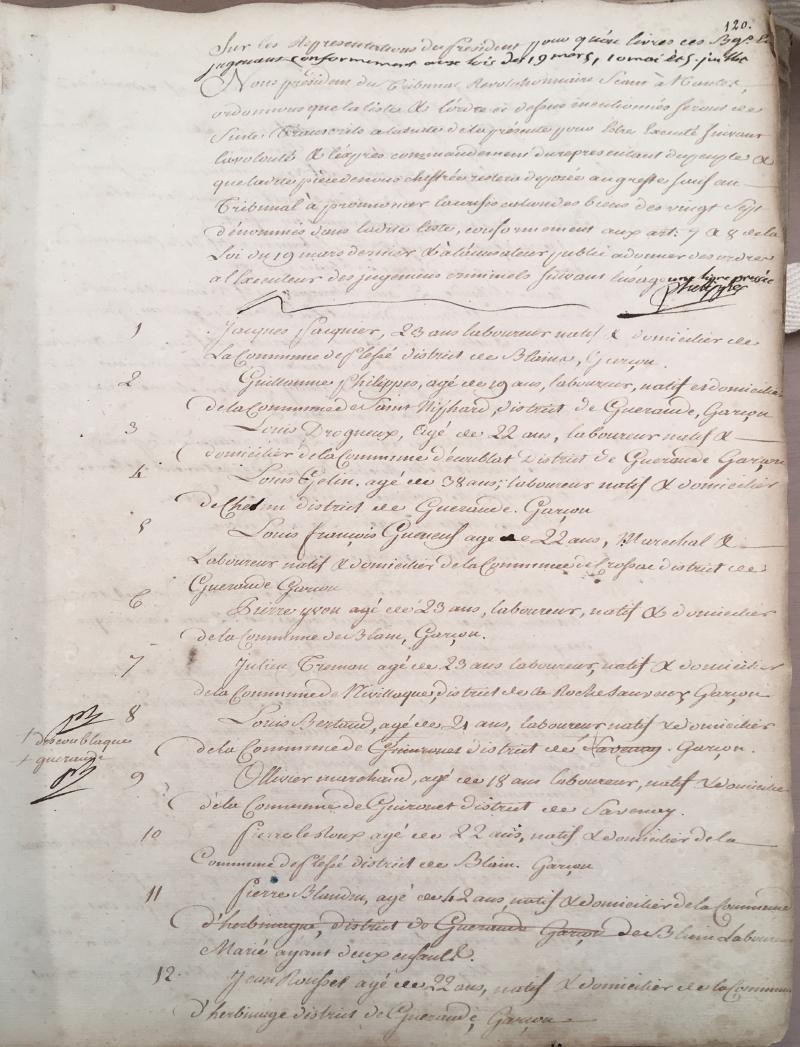 120.
Sur les Représentations du Président pour qu'on livres ces
jugemens conformement aux loix des 19 mars, 10 mai et 5 juillet
Nous président du Tribunal Revolutionnaire Seant à Nantes,
ordonnons que la liste & l'ordre ci dessus mentionnés seront de
Suite Transcrits à la suite de la présente pour être Executé suivant
la volonté & l'exprès commandement du representant du peuple &
que ladite piece de nous chiffrée restera deposée au greffe sauf au
Tribunal à prononcer la confiscation des biens des vingt Sept
dénommés dans ladite liste, conformement aux art. 7 & 8 de la
Loi du 19 mars dernier & à l'accusateur public a donner des ordres
a l'Executeur des jugemens criminels suivant
Phelippes
1 Jacques 23 ans laboureur natif & domicilier de
La Commune de Plessé district de Blain, Garçon.
2 Guillaume Philippes, agé de 19 ans, laboureur, natif et domicilié
de la Commune de Saint district de Guerande, Garçon
3 Louis Drogueux, Agé de 22 ans, laboureur natif &
domicilier de la Commune d'Escoublat District de Guerande Garçon
4 Louis Gelin. agé de 38 ans, laboureur natif & domicilier
de district de Guerande. Garçon
5 Louis François age de 22 ans, Marechal &
Laboureur natif & domicilier de la Commune de Crossac district de
Guerande Garçon
6 Pierre yvon agé de 23 ans, laboureur, natif & domicilier
de la Commune de Blain, Garçon.
7 Julien agé de 23 ans laboureur, natif & domicilier
de la Commune de Nivillaque, district de la Roche Sauveur Garçon
8 Louis Bertaud, agé de 21 ans, laboureur natif & domicilier
de la Commune de Guinrouet district de Savenay. Garçon.
/ descoublaque
+ guerande
9 Ollivier marchand, agé de 18 ans laboureur, natif & domicilié
de la Commune de Guirouet district de Savenay.
10 Pierre le Roux agé de 22 ans, natif & domicilier de la
Commune de Plessé district de Blain. Garçon
11 Pierre Blandin, agé de 42 ans, natif & domicilier de la Commune
d'herbinague, district de Guerande Garçon de Blain Laboureur
Marié ayant deux enfants.
12. Jean Rousset agé de 22 ans, natif & domicilier de la Commune
d'herbinage district de Guerande, Garçon